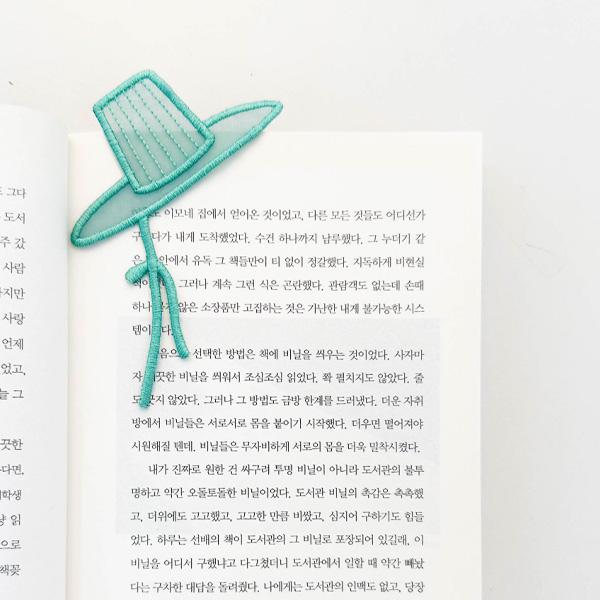 그다
도서
주 갔
사람
지만
사랑
언제
었고,
늘 그
끗한
다면,
학생
량 읽
으로
책꽂
이모네 집에서 얻어온 것이었고, 다른 모든 것들도 어디선가
다가 내게 도착했었다. 수건 하나까지 남루했다. 그 누더기 같
은 안에서 유독 그 책들만이 티 없이 정갈했다. 지독하게 비현실
그러나 계속 그런 식은 곤란했다. 관람객도 없는데 손때
하나 않은 소장품만 고집하는 것은 가난한 내게 불가능한 시스
템이다.
음으 선택한 방법은 책에 비닐을 씌우는 것이었다. 사자마
자 끗한 비닐을 씌워서 조심조심 읽었다. 쫙 펼치지도 않았다. 줄
도 긋지 않았다. 그러나 그 방법도 금방 한계를 드러냈다. 더운 자취
방에서 비닐들은 서로서로 몸을 붙이기 시작했다. 더우면 떨어져야
시원해질 텐데. 비닐들은 무자비하게 서로의 몸을 더욱 밀착시켰다.
내가 진짜로 원한 건 싸구려 투명 비닐이 아니라 도서관의 불투
명하고 약간 오돌토돌한 비닐이었다. 도서관 비닐의 촉감은 촉촉했
고, 더위에도 고고했고, 고고한 만큼 비쌌고, 심지어 구하기도 힘들
었다. 하루는 선배의 책이 도서관의 그 비닐로 포장되어 있길래, 이
비닐을 어디서 구했냐고 다그쳤더니 도서관에서 일할 때 약간 빼놨
다는 구차한 대답을 돌려줬다. 나에게는 도서관의 인맥도 없고, 당장